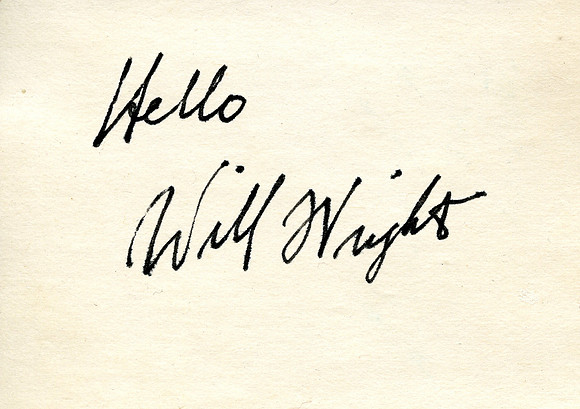 Hello
Will Wright